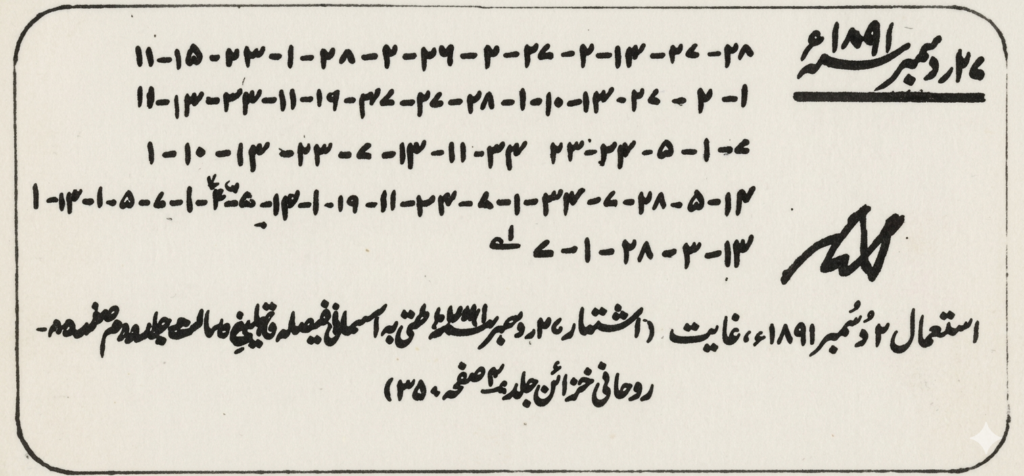 ۲۷ر دسمبر ۱۸۹۱ء
۲۸-۲۷-۱۴-۲-۲۷-۲-۲۶-۲-۲۸-۱-۲۳-۱۵-۱۱
۱-۲-۲۷-۱۴-۱۰-۱-۲۸-۲۷-۴۷-۱۹-۱۱-۳۳-۱۴-۱۱
۷-۱-۵-۲۴-۲۳ ۳۴-۱۱-۱۴-۷-۲۳-۱۴-۱۰-۱
۱۴-۵-۲۸-۷-۳۴-۱-۷-۲۴-۱۱-۱۹-۱-۱۴-۷-۱-۷-۵-۱-۱۴-۱
۱۳-۳-۲۸-۱-۷
استعمال ۲ دُسمبر ۱۸۹۱ء، غایت (اشتہار ۲۷ر دسمبر بہ آسمانی فیصلہ جلد دوم صفحہ ۸۵-
روحانی خزائن جلد ۴ صفحہ ۳۵۰)